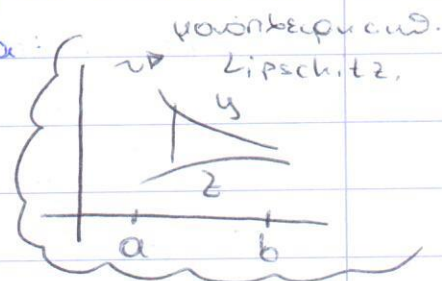 μονόπλευρη συνθ.
Lipschitz,
y
z
a b